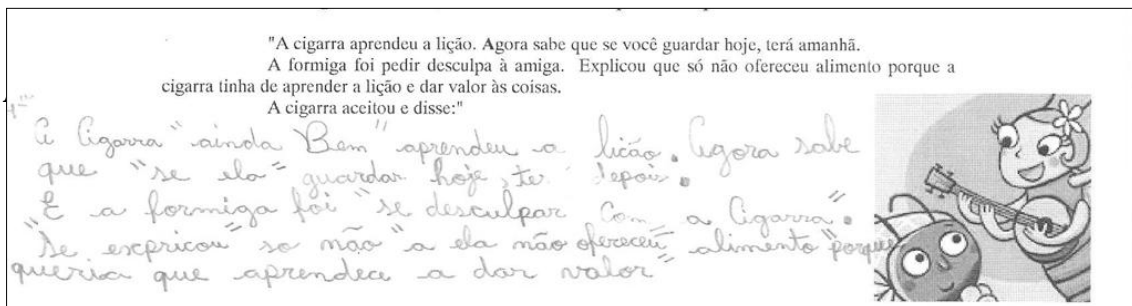 "A cigarra aprendeu a lição. Agora sabe que se você guardar hoje, terá amanhã.
A formiga foi pedir desculpa à amiga. Explicou que só não ofereceu alimento porque a
cigarra tinha de aprender a lição e dar valor às coisas.
A cigarra aceitou e disse:"
A Cigarra "ainda Bem" aprendeu a licão. Agora sabe
que "se ela" guardar hoje, ter depois.
"E a formiga foi "se desculpar Com a Cigarra".
"Se expricou" so não "a ela não ofereceu" alimento "porque
queria que aprendece a dar valor"